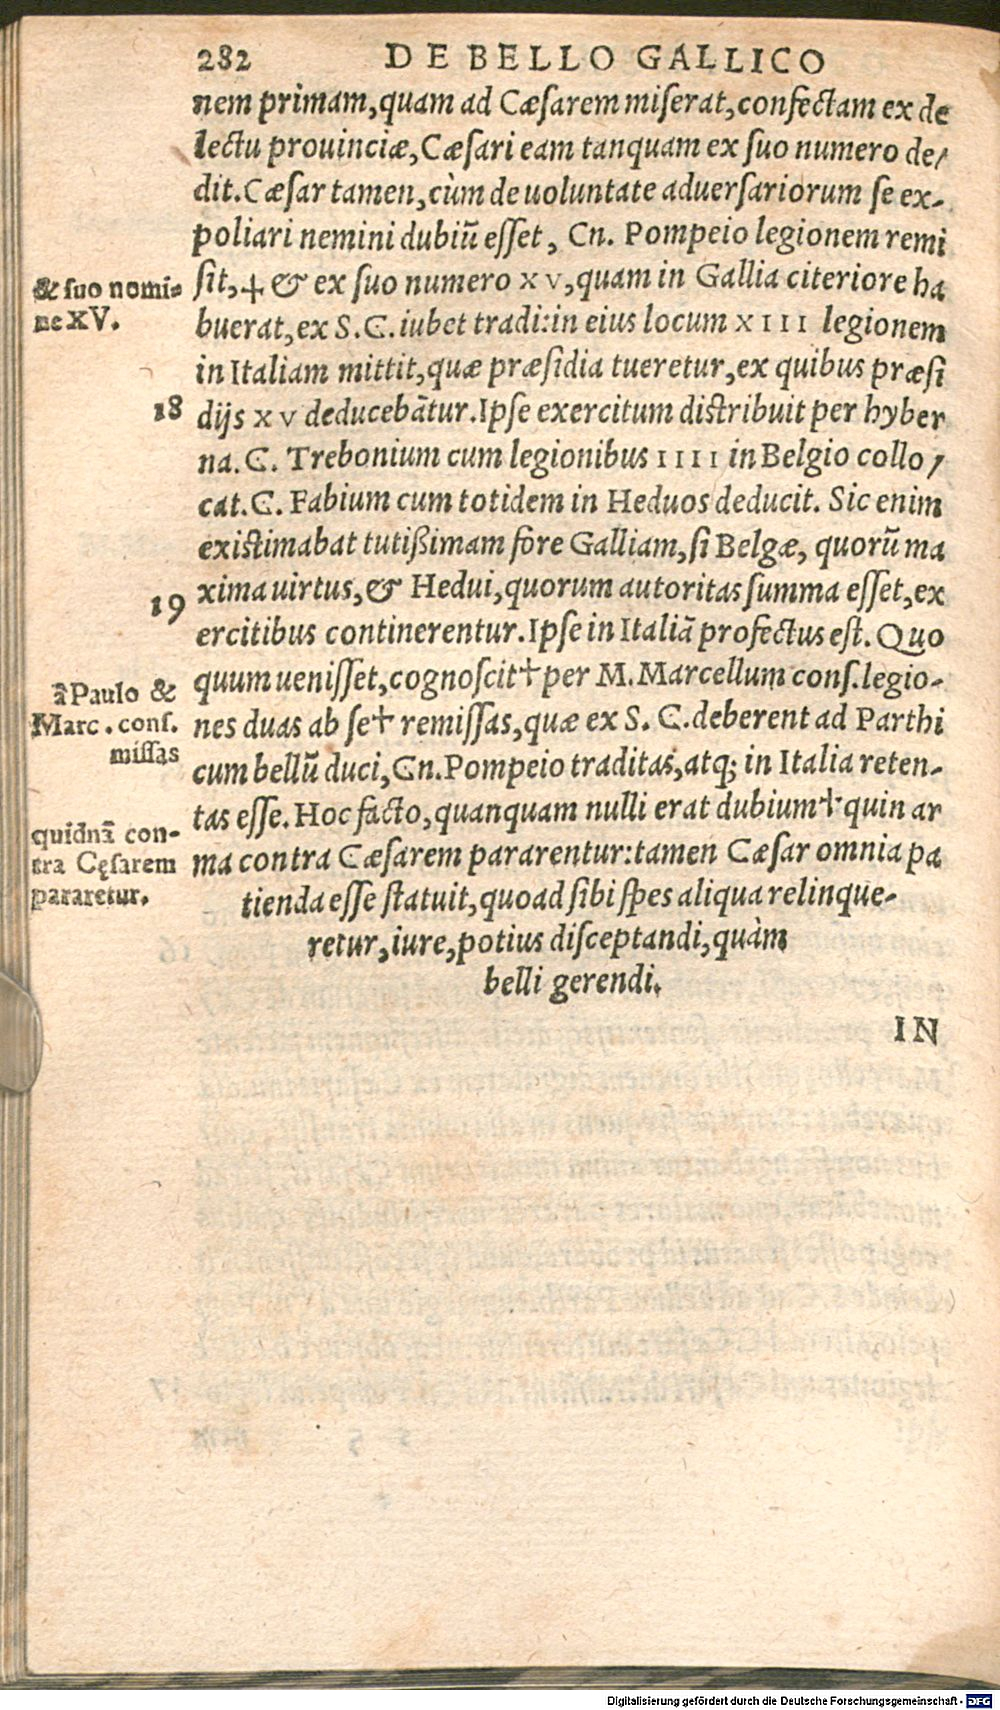 282 DE BELLO GALLICO
nem primam, quam ad Cæsarem miserat, confectam ex de
lectu prouinciæ, Cæsari eam tanquam ex suo numero de/
dit. Cæsar tamen, cùm de uoluntate aduersariorum se ex-
poliari nemini dubiũ esset, Cn. Pompeio legionem remi
& suo nomi-
ne XV.
sit, ✝ & ex suo numero XV, quam in Gallia citeriore ha
buerat, ex S.C. iubet tradi: in eius locum XIII legionem
in Italiam mittit, quæ præsidia tueretur, ex quibus præsi
18
dijs XV deducebãtur. Ipse exercitum distribuit per hyber
na. C. Trebonium cum legionibus IIII in Belgio collo/
cat. C. Fabium cum totidem in Heduos deducit. Sic enim
existimabat tutißimam fore Galliam, si Belgæ, quorũ ma
19
xima uirtus, & Hedui, quorum autoritas summa esset, ex
ercitibus continerentur. Ipse in Italiã profectus est. Quo
ã Paulo &
Marc. cons.
missas
quum uenisset, cognoscit ✝ per M. Marcellum cons. legio-
nes duas ab se ✝ remissas, quæ ex S. C. deberent ad Parthi
cum bellũ duci, Cn. Pompeio traditas, atq; in Italia reten-
tas esse. Hoc facto, quanquam nulli erat dubium ✝ quin ar
quidnã con-
tra Cęsarem
pararetur.
ma contra Cæsarem pararentur: tamen Cæsar omnia pa
tienda esse statuit, quoad sibi spes aliqua relinque-
retur, iure, potius disceptandi, quàm
belli gerendi.
IN
Digitalisierung gefördert durch die Deutsche Forschungsgemeinschaft - DFG